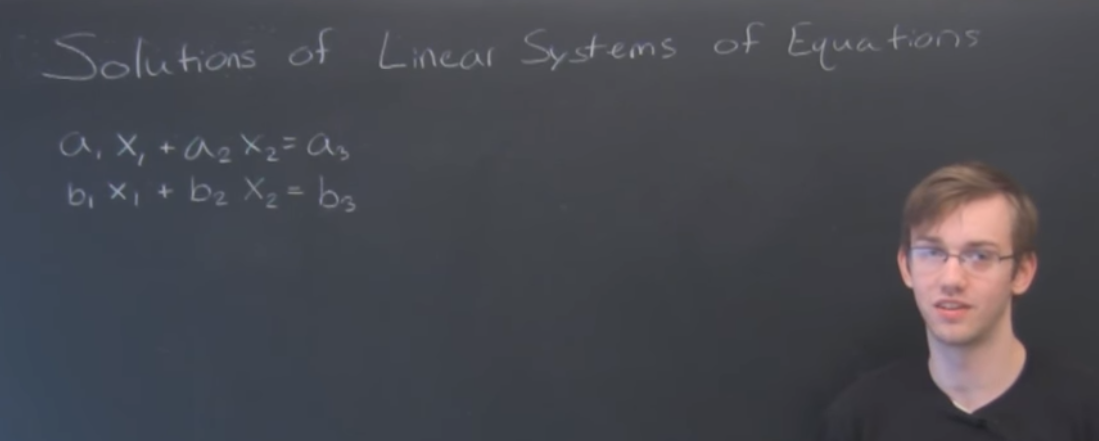 Solutions of Linear Systems of Equations
a₁ x₁ + a₂ x₂ = a₃
b₁ x₁ + b₂ x₂ = b₃